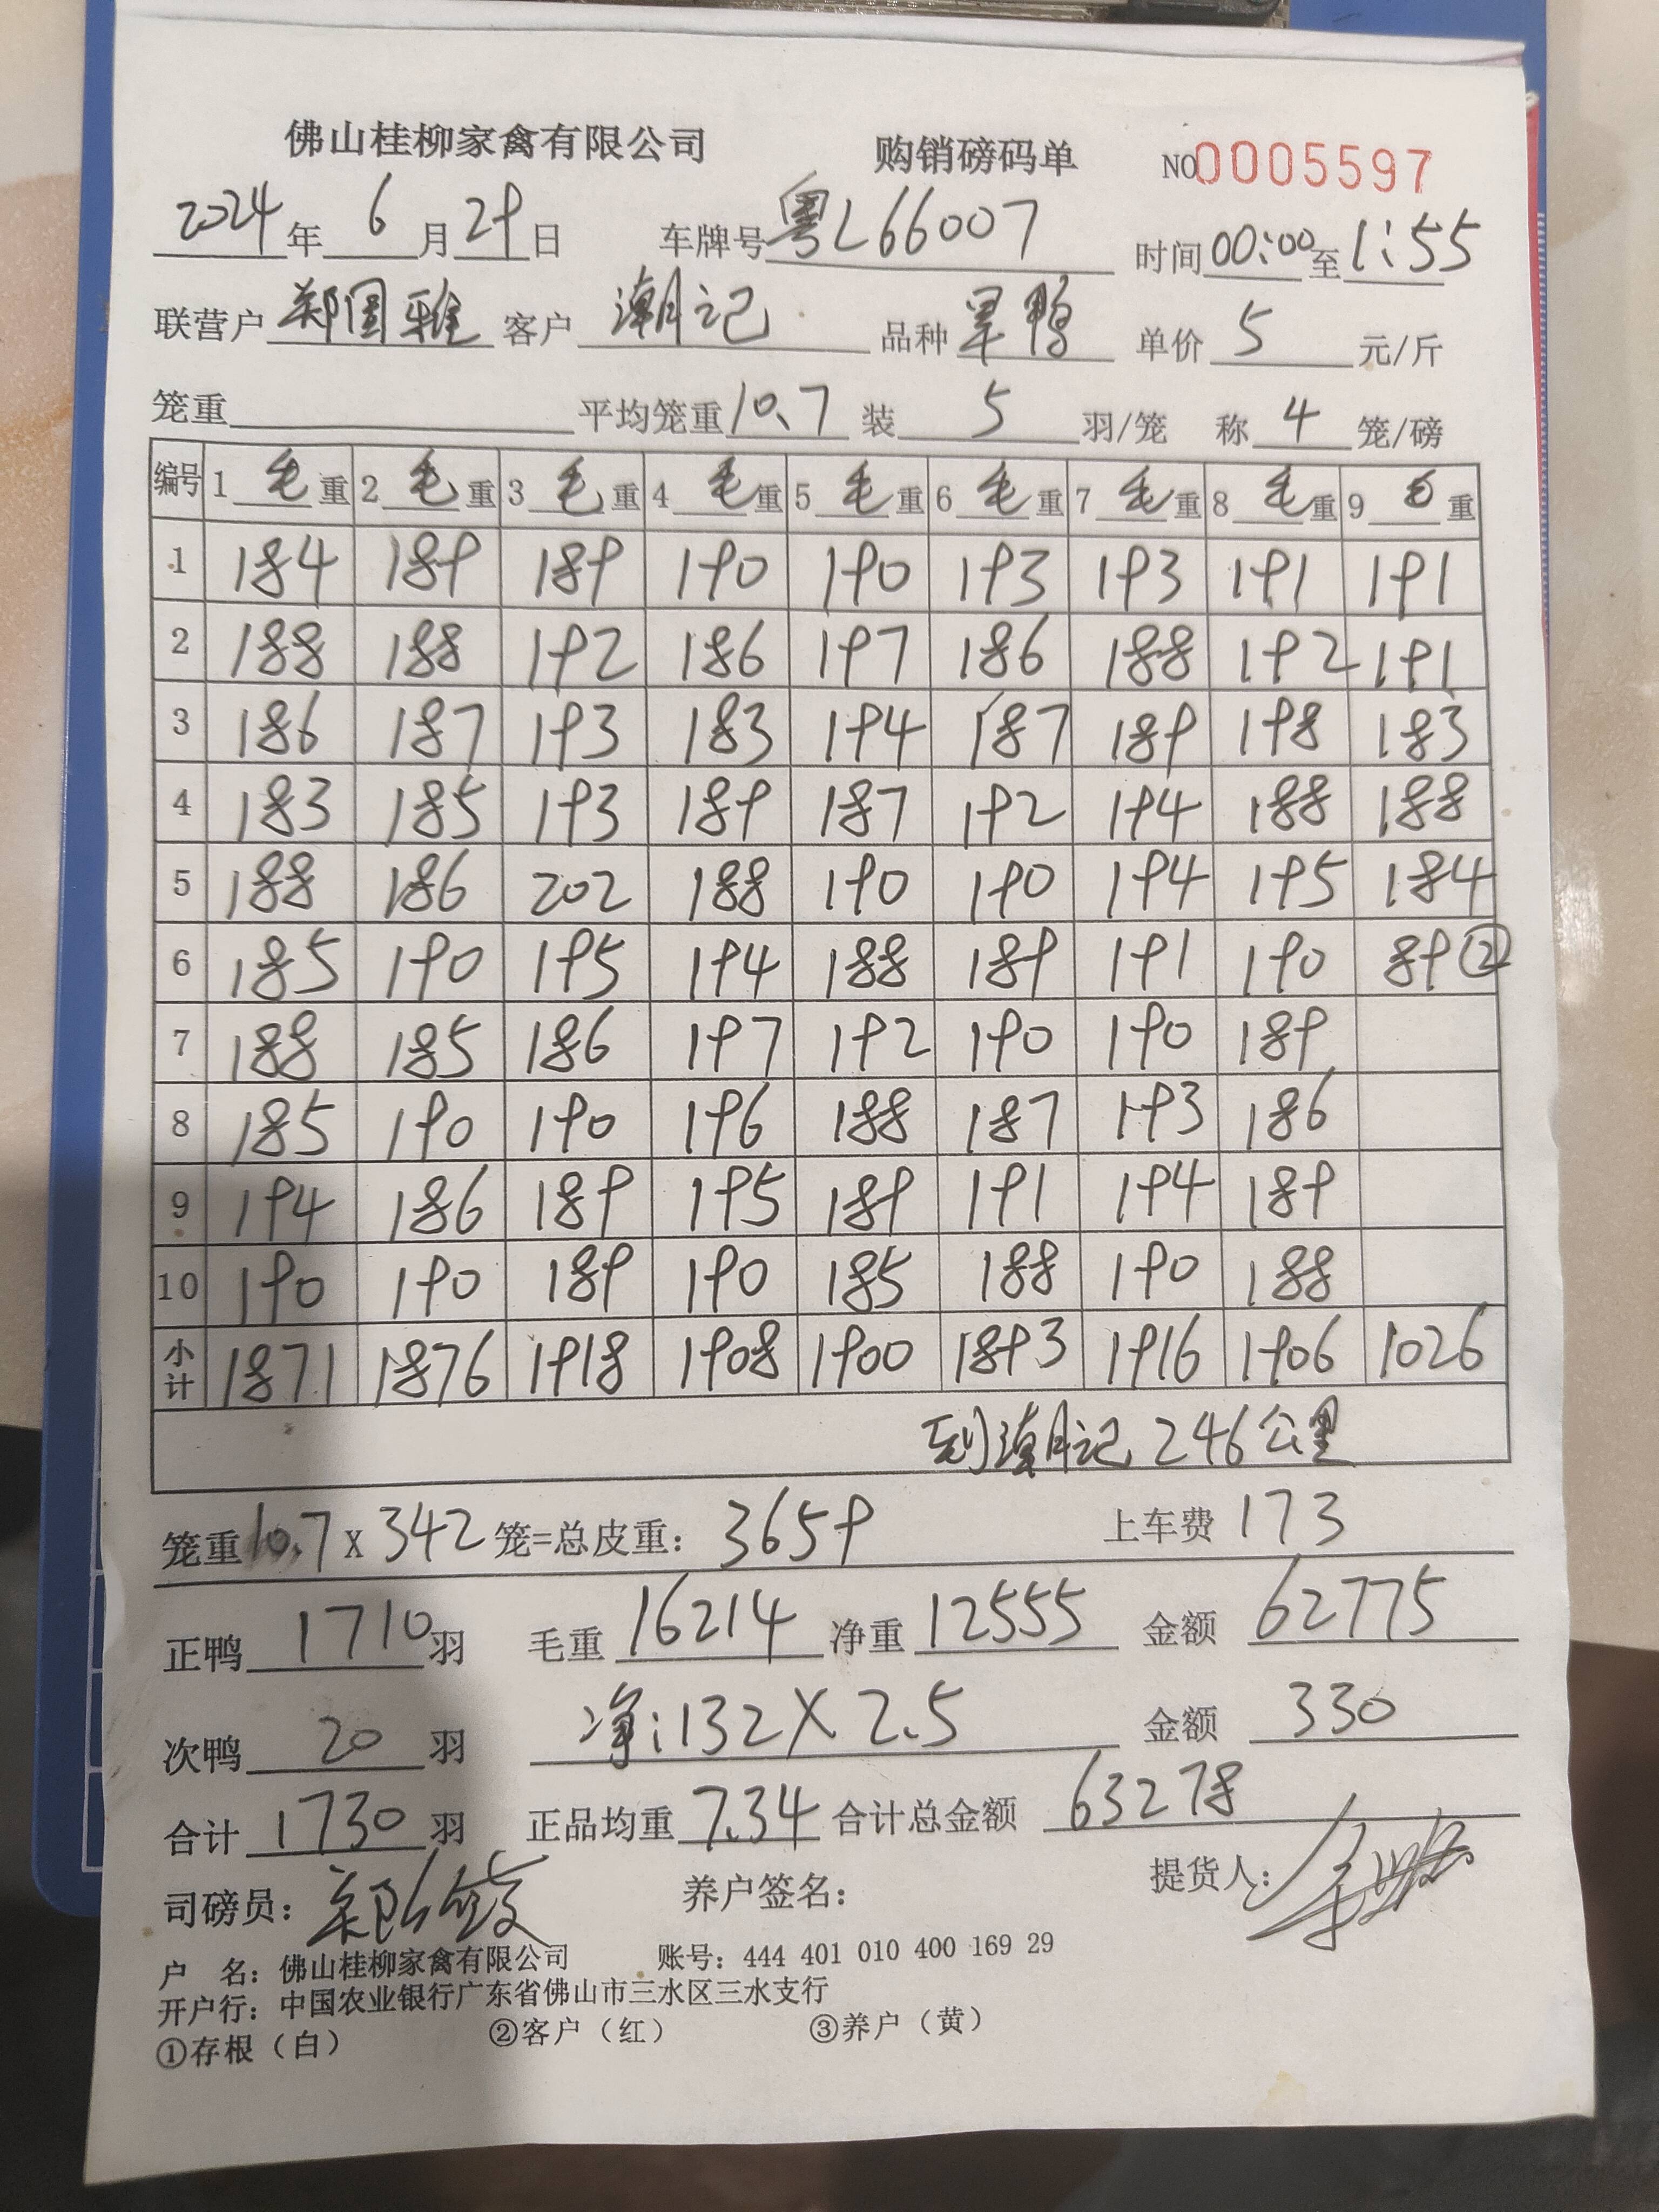 佛山桂柳家禽有限公司 购销磅码单 NO 0005597
2024年 6 月 29 日 车牌号 粤L66007 时间 00:00 至 1:55
联营户 郑国雅 客户 潮记 品种 旱鸭 单价 5 元/斤
笼重 平均笼重 10.7 装 5 羽/笼 称 4 笼/磅
编号 1 毛重 2 毛重 3 毛重 4 毛重 5 毛重 6 毛重 7 毛重 8 毛重 9 毛重
1 184 189 189 190 190 193 193 191 191
2 188 188 192 186 197 186 188 192 191
3 186 187 193 183 194 187 189 198 183
4 183 185 193 189 187 192 194 188 188
5 188 186 202 188 190 190 194 195 184
6 185 190 195 194 188 189 191 190 89②
7 188 185 186 197 192 190 190 189
8 185 190 190 196 188 187 193 186
9 194 186 189 195 189 191 194 189
10 190 190 189 190 185 188 190 188
小计 1871 1876 1918 1908 1900 1893 1916 1906 1026
到潮记 246公里
笼重 10.7 X 342 笼=总皮重: 3659 上车费 173
正鸭 1710 羽 毛重 16214 净重 12555 金额 62775
次鸭 20 羽 净:132X2.5 金额 330
合计 1730 羽 正品均重 7.34 合计总金额 63278
司磅员: 养户签名: 提货人:
户 名: 佛山桂柳家禽有限公司 账号: 444 401 010 400 169 29
开户行: 中国农业银行广东省佛山市三水区三水支行
①存根（白） ②客户（红） ③养户（黄）